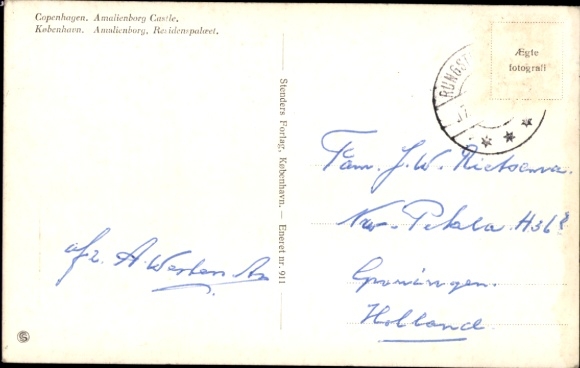 Copenhagen. Amalienborg Castle.
København. Amalienborg, Residenspalæet.
Stenders Forlag, København. — Eneret nr. 911
Ægte
fotografi
RUNGS
Fam. J. W.
Nw- Pekela H36
Groningen.
Holland
afz. A.